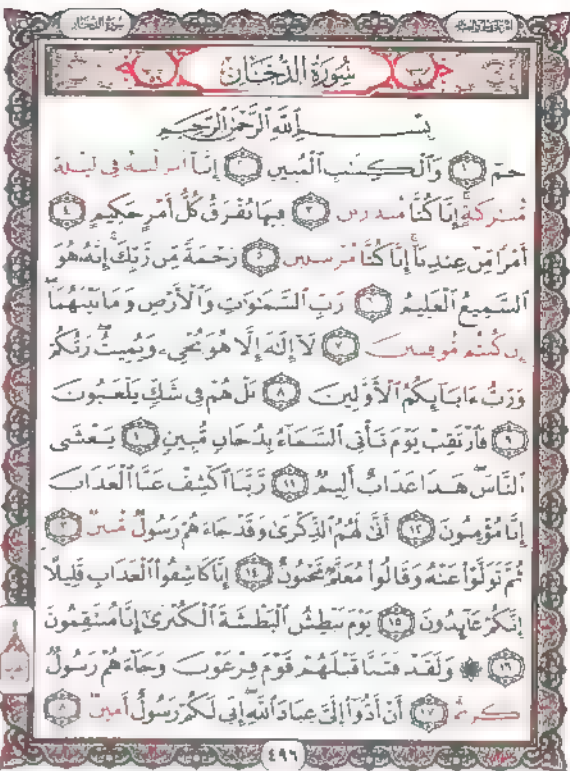 سُورَةُ الدُّخَانِ
سُورَةُ الدُّخَانِ
بِسْمِ ٱللَّهِ ٱلرَّحْمَٰنِ ٱلرَّحِيمِ
حمٓ ١ وَٱلْكِتَٰبِ ٱلْمُبِينِ ٢ إِنَّآ أَنزَلْنَٰهُ فِى لَيْلَةٍ
مُّبَٰرَكَةٍ إِنَّا كُنَّا مُنذِرِينَ ٣ فِيهَا يُفْرَقُ كُلُّ أَمْرٍ حَكِيمٍ ٤
أَمْرًا مِّنْ عِندِنَآ إِنَّا كُنَّا مُرْسِلِينَ ٥ رَحْمَةً مِّن رَّبِّكَ إِنَّهُۥ هُوَ
ٱلسَّمِيعُ ٱلْعَلِيمُ ٦ رَبِّ ٱلسَّمَٰوَٰتِ وَٱلْأَرْضِ وَمَا بَيْنَهُمَآ
إِن كُنتُم مُّوقِنِينَ ٧ لَآ إِلَٰهَ إِلَّا هُوَ يُحْىِۦ وَيُمِيتُ رَبُّكُمْ
وَرَبُّ ءَابَآئِكُمُ ٱلْأَوَّلِينَ ٨ بَلْ هُمْ فِى شَكٍّ يَلْعَبُونَ
٩ فَٱرْتَقِبْ يَوْمَ تَأْتِى ٱلسَّمَآءُ بِدُخَانٍ مُّبِينٍ ١٠ يَغْشَى
ٱلنَّاسَ هَٰذَا عَذَابٌ أَلِيمٌ ١١ رَّبَّنَا ٱكْشِفْ عَنَّا ٱلْعَذَابَ
إِنَّا مُؤْمِنُونَ ١٢ أَنَّىٰ لَهُمُ ٱلذِّكْرَىٰ وَقَدْ جَآءَهُمْ رَسُولٌ مُّبِينٌ ١٣
ثُمَّ تَوَلَّوْا۟ عَنْهُ وَقَالُوا۟ مُعَلَّمٌ مَّجْنُونٌ ١٤ إِنَّا كَاشِفُوا۟ ٱلْعَذَابِ قَلِيلًا
إِنَّكُمْ عَآئِدُونَ ١٥ يَوْمَ نَبْطِشُ ٱلْبَطْشَةَ ٱلْكُبْرَىٰٓ إِنَّا مُنتَقِمُونَ
١٦ ۞ وَلَقَدْ فَتَنَّا قَبْلَهُمْ قَوْمَ فِرْعَوْنَ وَجَآءَهُمْ رَسُولٌ
كَرِيمٌ ١٧ أَنْ أَدُّوٓا۟ إِلَىَّ عِبَادَ ٱللَّهِ إِنِّى لَكُمْ رَسُولٌ أَمِينٌ ١٨
٤٩٦